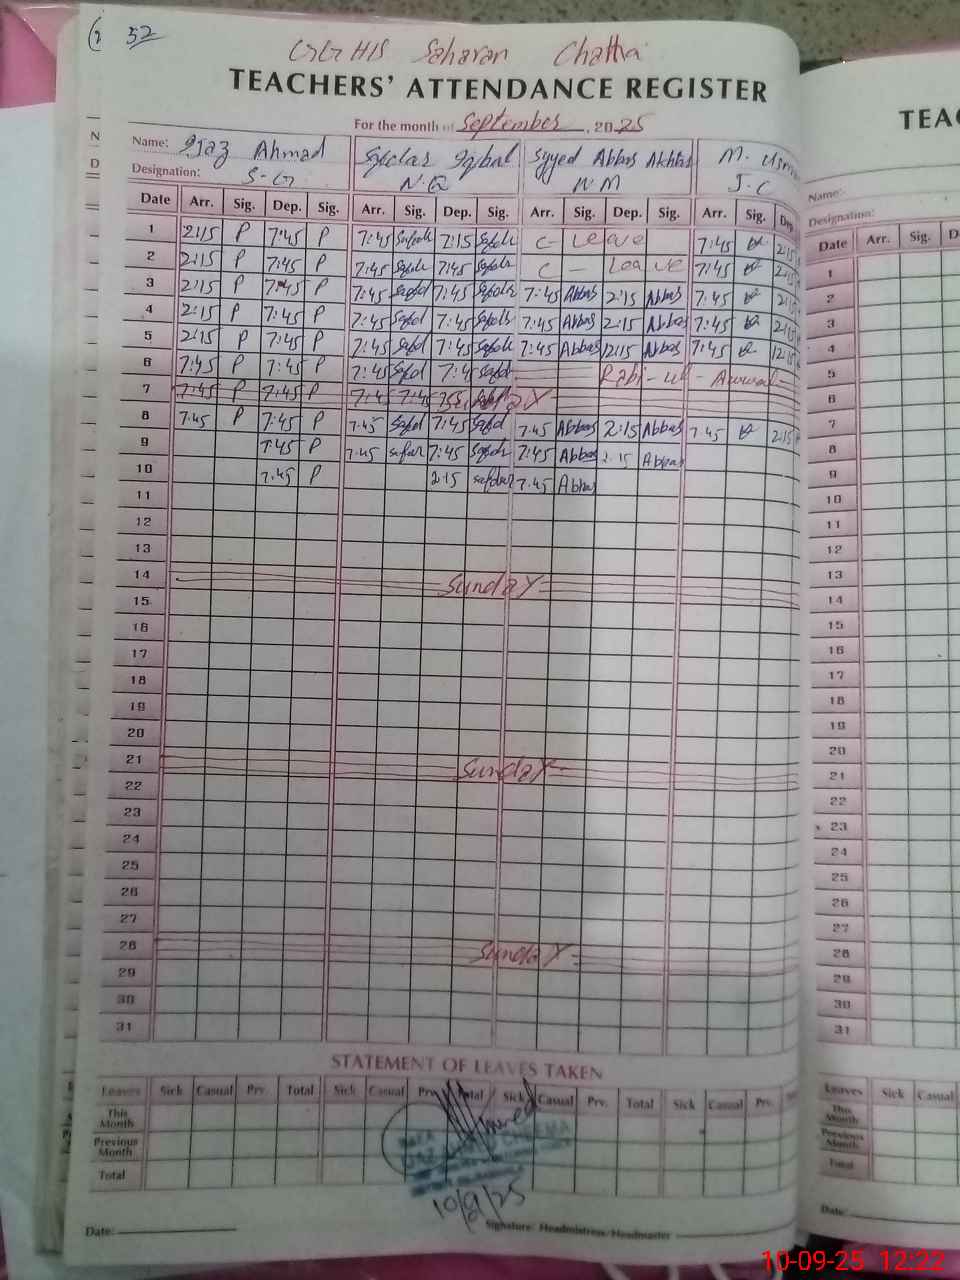 52
GGHS Saharan Chatha
TEACHERS' ATTENDANCE REGISTER
For the month of September, 2025
Name: Ijaz Ahmad Safdar Iqbal Syyed Abbas Akhtar M. Usm
Designation: S-G N.Q N.M J.C
Date Arr. Sig. Dep. Sig. Arr. Sig. Dep. Sig. Arr. Sig. Dep. Sig. Arr. Sig. Dep
1 2:15 P 7:45 P 7:45 Safdr 7:15 Safdr C- Leave 7:45 2:15
2 2:15 P 7:45 P 7:45 Safdr 7:45 Safdr C - Leave 7:45 2:15
3 2:15 P 7:45 P 7:45 Safd 7:45 Safdr 7:45 Abbas 2:15 Abbas 7:45 2:15
4 2:15 P 7:45 P 7:45 Safd 7:45 Safdr 7:45 Abbas 2:15 Abbas 7:45 2:15
5 2:15 P 7:45 P 7:45 Safd 7:45 Safdr 7:45 Abbas 12:15 Abbas 7:45 12:15
6 7:45 P 7:45 P 7:45 Safd 7:4 Safdr Rabi-ul-Awwal
7 7:45 P 7:45 P 7:45 7:45 Sunday
8 7:45 P 7:45 P 7:45 Safd 7:45 Safd 7:45 Abbas 2:15 Abbas 7:45 2:15
9 7:45 P 7:45 safar 7:45 Safdr 7:45 Abbas 2:15 Abbas
10 7:45 P 2:15 safdar 7:45 Abbas
11
12
13
14 Sunday
15
16
17
18
19
20
21 Sunday
22
23
24
25
26
27
28 Sunday
29
30
31
STATEMENT OF LEAVES TAKEN
Leaves Sick Casual Prv. Total Sick Casual Prv. Total Sick Casual Prv. Total Sick Casual Prv.
This Month
Previous Month
Total
10/9/25
Date: Signature: Headmistress/Headmaster
N
D
TEAC
Name:
Designation:
Date Arr. Sig. D
1
2
3
4
5
6
7
8
9
10
11
12
13
14
15
16
17
18
19
20
21
22
23
24
25
26
27
28
29
30
31
Leaves Sick Casual
This Month
Previous Month
Total
Date:
10-09-25 12:22